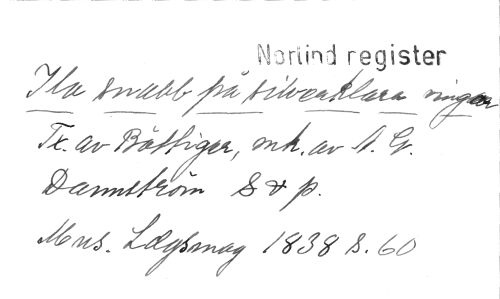 Norlind register
Ila snabb på silverklara vingar
Tx. av Böttiger, mk. av A. G.
Dannström S & p.
Mus. Lördsmag 1838 s. 60